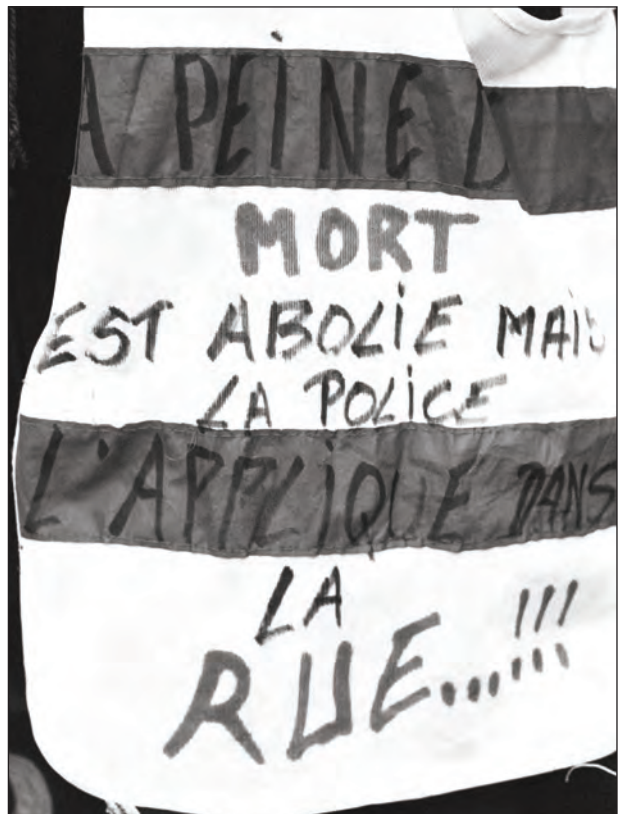 A PEINE D
MORT
EST ABOLIE MAIS
LA POLICE
L'APPLIQUE DANS
LA
RUE...!!!